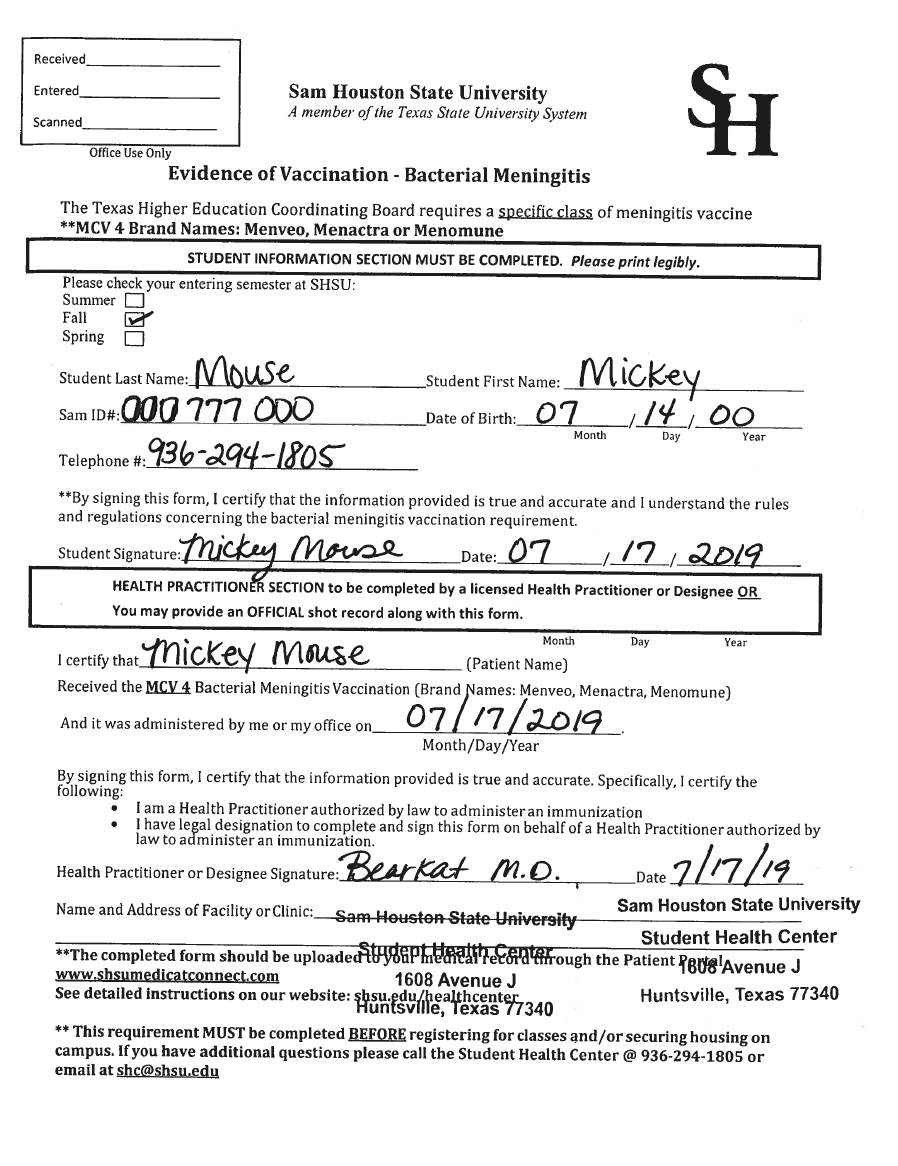 Received
Entered
Scanned
Office Use Only
Sam Houston State University
A member of the Texas State University System
SH
Evidence of Vaccination - Bacterial Meningitis
The Texas Higher Education Coordinating Board requires a specific class of meningitis vaccine
**MCV 4 Brand Names: Menveo, Menactra or Menomune
STUDENT INFORMATION SECTION MUST BE COMPLETED. Please print legibly.
Please check your entering semester at SHSU:
Summer
Fall
Spring
Student Last Name: Mouse Student First Name: Mickey
Sam ID#: 000 777 000 Date of Birth: 07 / 14 / 00
Month Day Year
Telephone #: 936-294-1805
**By signing this form, I certify that the information provided is true and accurate and I understand the rules
and regulations concerning the bacterial meningitis vaccination requirement.
Student Signature: Mickey Mouse Date: 07 / 17 / 2019
HEALTH PRACTITIONER SECTION to be completed by a licensed Health Practitioner or Designee OR
You may provide an OFFICIAL shot record along with this form.
Month Day Year
I certify that Mickey Mouse (Patient Name)
Received the MCV 4 Bacterial Meningitis Vaccination (Brand Names: Menveo, Menactra, Menomune)
And it was administered by me or my office on 07/17/2019.
Month/Day/Year
By signing this form, I certify that the information provided is true and accurate. Specifically, I certify the
following:
• I am a Health Practitioner authorized by law to administer an immunization
• I have legal designation to complete and sign this form on behalf of a Health Practitioner authorized by
law to administer an immunization.
Health Practitioner or Designee Signature: Bearkat M.D. Date 7/17/19
Name and Address of Facility or Clinic: Sam Houston State University
Student Health Center
1608 Avenue J
Huntsville, Texas 77340
Sam Houston State University
Student Health Center
1608 Avenue J
Huntsville, Texas 77340
**The completed form should be uploaded to your medical record through the Patient Portal
www.shsumedicatconnect.com
See detailed instructions on our website: shsu.edu/healthcenter
** This requirement MUST be completed BEFORE registering for classes and/or securing housing on
campus. If you have additional questions please call the Student Health Center @ 936-294-1805 or
email at shc@shsu.edu